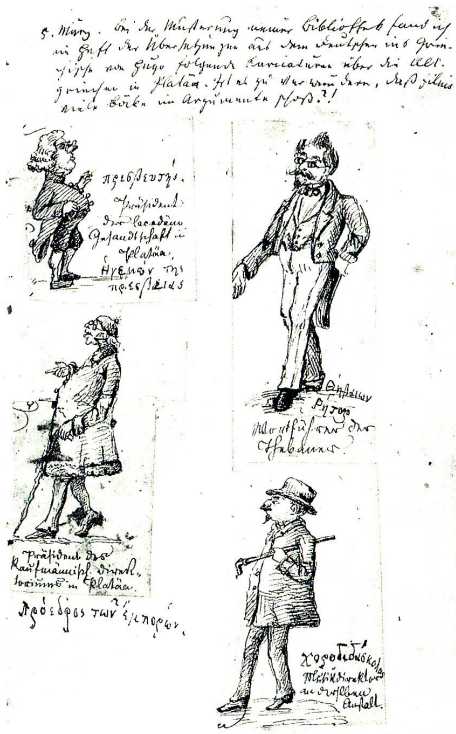 5. März. Bei der Musterung meiner Bibliothek fand ich
im Heft der Übersetzungen aus dem Deutschen ins Grie-
chische von Hugo folgende Karikaturen über die Alt-
griechen in Platäa. Ist es zu verwundern, daß
viele Böcke im Argumente schoß?!
πρεσβευτής.
Präsident
der lacedäm
Gesandtschaft in
Platäa.
Ἡγεμων της
πρεσβείας
Θηβαίων
Ρήτωρ
Wortführer der
Thebaner.
Präsident des
Kaufmännisch. Direk-
toriums in Platäa.
Πρόεδρος των ἐμπορων.
Χοροδιδάσκαλος
Musikdirektor
an derselben
Anstalt.